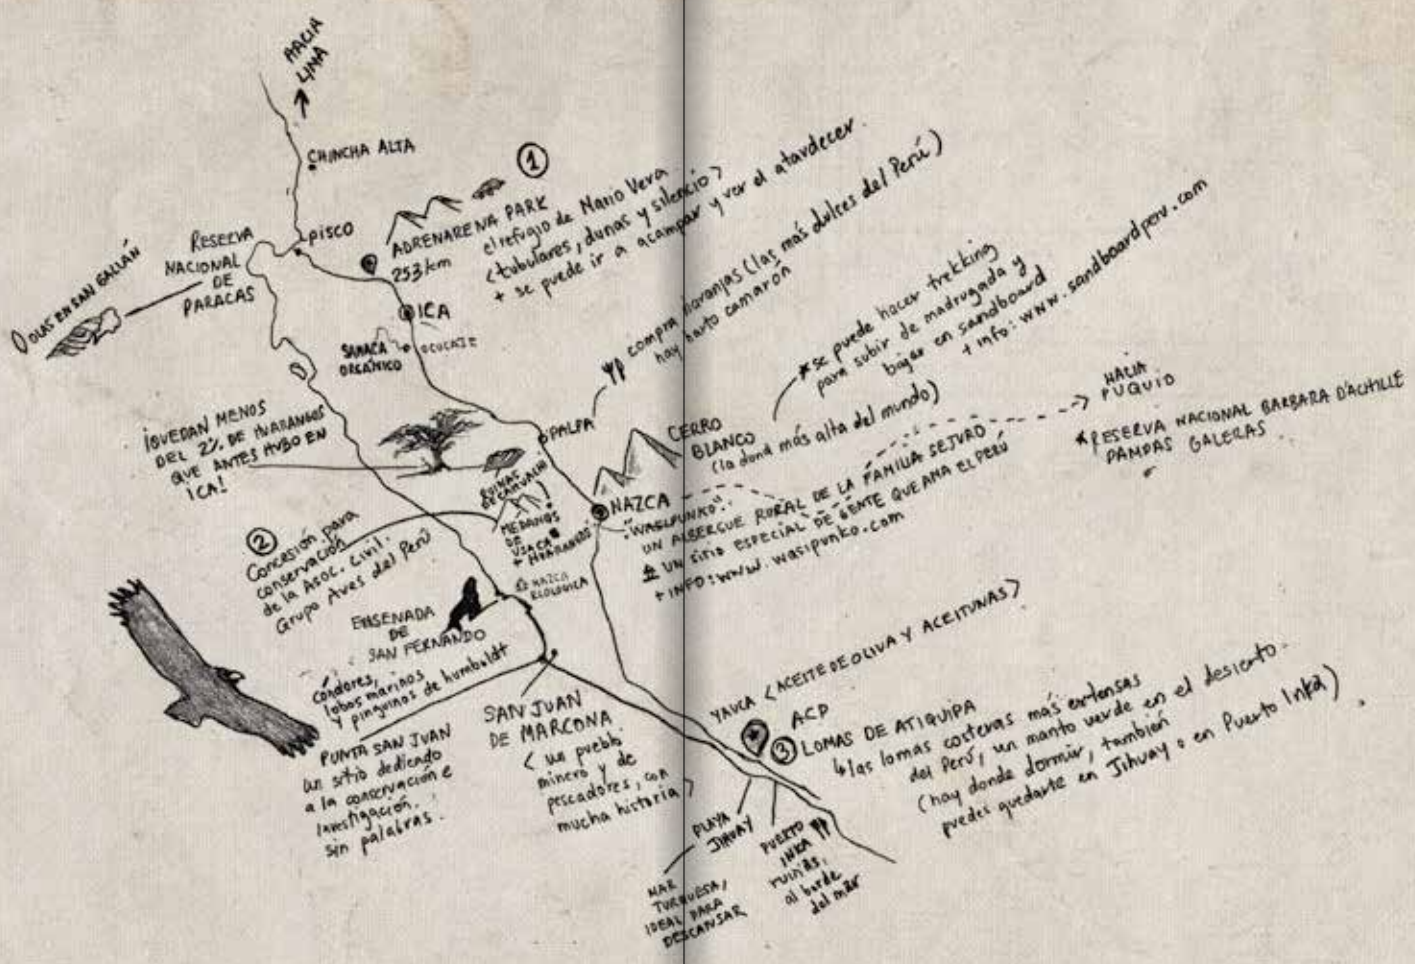 HACIA
LIMA
CHINCHA ALTA
PISCO
RESERVA
NACIONAL
DE
PARACAS
OLAS EN SAN GALLÁN
1
ADRENARENA PARK
253 km
el refugio de Mario Vera
(tubulares, dunas y silencio)
+ se puede ir a acampar y ver el atardecer.
ICA
SAMACA
ORGÁNICO
OCUCAJE
compra naranjas (las más dulces del Perú)
hay harto camarón
PALPA
¡QUEDAN MENOS
DEL 2% DE HUARANGOS
QUE ANTES HUBO EN
ICA!
RUINAS
DE CAHUACHI
CERRO
BLANCO
(la duna más alta del mundo)
*se puede hacer trekking
para subir de madrugada y
bajar en sandboard
+ info: www.sandboardperu.com
HACIA
PUQUIO
*RESERVA NACIONAL BARBARA D'ACHILLE
PAMPAS GALERAS
NAZCA
"WASIPUNKO":
UN ALBERGUE RURAL DE LA FAMILIA SEJURO
UN SITIO ESPECIAL DE GENTE QUE AMA EL PERÚ
+ INFO: www.wasipunko.com
MEDANOS
DE
USACA
+ HUARANGOS
NAZCA
ECOLOGICA
2
Concesión para
conservación
de la Asoc. Civil.
Grupo Aves del Perú
ENSENADA
DE
SAN FERNANDO
cóndores,
lobos marinos
y pinguinos de humboldt
PUNTA SAN JUAN
un sitio dedicado
a la conservación e
investigación.
sin palabras.
SAN JUAN
DE MARCONA
(un pueblo
minero y de
pescadores, con
mucha historia)
YAUCA (ACEITE DE OLIVA Y ACEITUNAS)
ACP
3 LOMAS DE ATIQUIPA
las lomas costeras más extensas
del Perú, un manto verde en el desierto.
(hay donde dormir, también
puedes quedarte en Jihuay o en Puerto Inka)
PLAYA
JIHUAY
MAR
TURQUESA,
IDEAL PARA
DESCANSAR
PUERTO
INKA
ruinas,
al borde
del mar